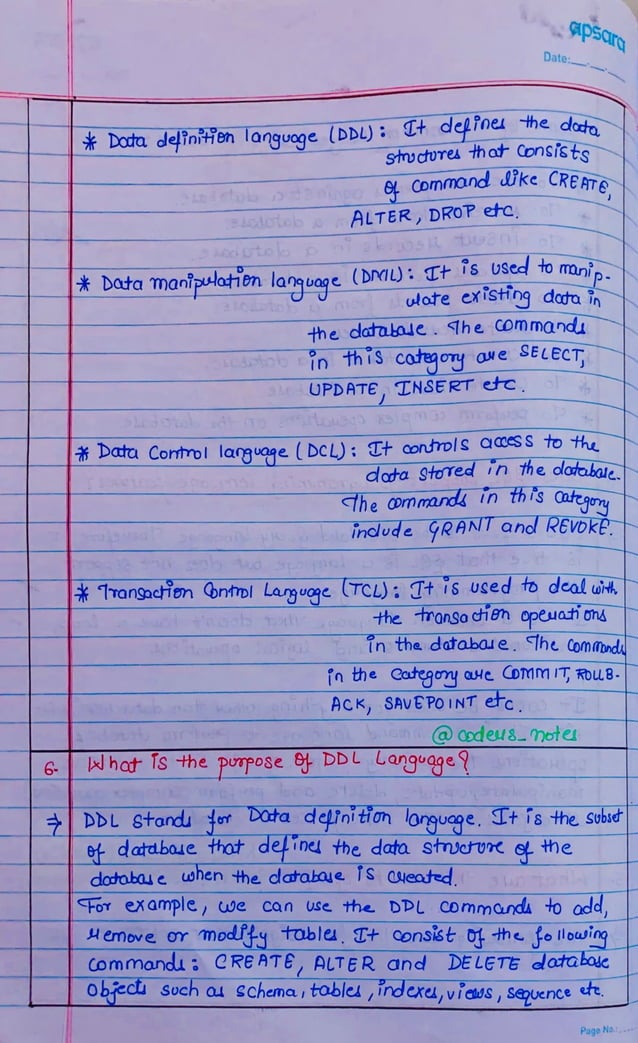 apsara
Date:
* Data definition language (DDL): It defines the data
structures that consists
of command like CREATE,
ALTER, DROP etc.
* Data manipulation language (DML): It is used to manip-
ulate existing data in
the database. The commands
in this category are SELECT,
UPDATE, INSERT etc.
* Data Control language (DCL): It controls access to the
data stored in the database.
The commands in this category
include GRANT and REVOKE.
* Transaction Control Language (TCL): It is used to deal with
the transaction operations
in the database. The commands
in the category are COMMIT, ROLLB-
ACK, SAVEPOINT etc.
@coders_notes
6. What is the purpose of DDL Language?
⇒ DDL stands for Data definition language. It is the subset
of database that defines the data structure of the
database when the database is created.
For example, we can use the DDL commands to add,
remove or modify tables. It consist of the following
commands: CREATE, ALTER and DELETE database
Objects such as schema, tables, indexes, views, sequence etc.
Page No.: